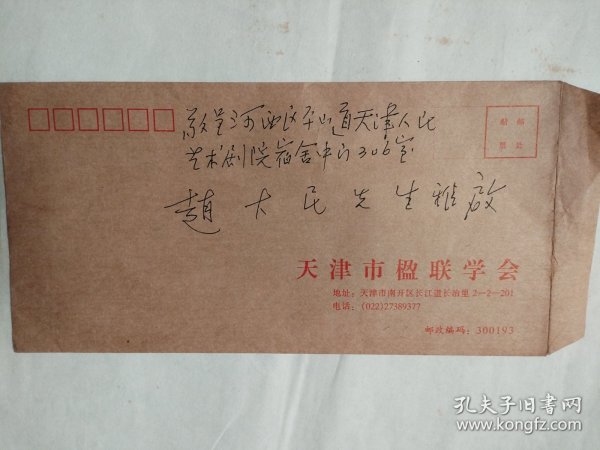 敬呈河西区平山道天津人民
艺术剧院宿舍中门306室
趙大民先生雅啟
贴邮
票处
天津市楹联学会
地址：天津市南开区长江道长治里2—2—201
电话：(022)27389377
邮政编码：300193
孔夫子旧书网
www.kongfz.com